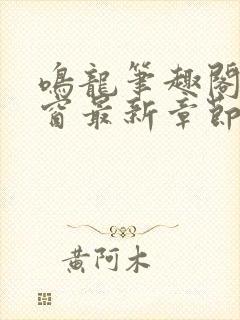 鳴龍筆趣閣
窗最新章節
黃阿木